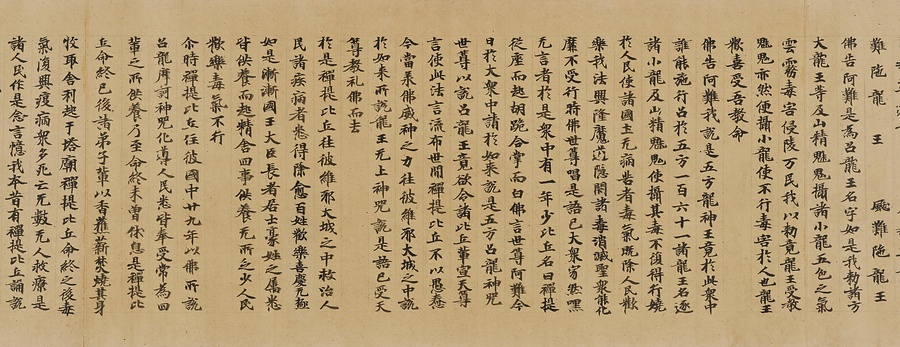 難陁龍王　颰難陁龍王
佛告阿難是為呂龍王名字如是我勑諸方
大龍王等及山精魍魎攝諸小龍五色之氣
雲霧毒害侵陵万民我以勑竟龍王受教
魍魎亦然便攝小龍使不行毒害於人也龍王
歡喜受吾教命
佛告阿難我說是五方龍神王竟於此衆中
誰能施行呂於五方一百六十一諸龍王名逐
諸小龍及山精魍魎使攝其毒不復得行嬈
於人民使諸國土无病苦者毒氣既除人民歡
樂我法興隆魔道隱閇諸毒消滅聖衆能化
靡不受行時佛世尊唱是語已大衆寂然嘿
无言者於是衆中有一年少比丘名曰禪提
從座而起胡跪合掌而白佛言世尊阿難今
日於大衆中請於如来說是五方呂龍神咒
世尊以說呂龍王竟欲令諸比丘輩宣天尊
言使此法言流布世間禪提比丘不以愚憃
今當承佛威神之力往彼維耶大城之中說
於如来所說龍王无上神咒說是語已受天
尊教礼佛而去
於是禪提比丘往彼維耶大城之中救治人
民諸疾病者悉得除愈百姓歡樂喜慶无極
如是漸漸國王大臣長者居士豪姓之屬悉
皆供養而起精舍四事供養无所乏少人民
歡樂毒氣不行
尒時禪提比丘在彼國中廿九年以佛所說
呂龍摩訶神咒化導人民悉皆奉受常為四
輩之所供養乃至命終未曾休息是禪提比
丘命終已後諸弟子輩以香薪焚燒其身
牧取舍利起于塔廟禪提比丘命終之後毒
氣復興疫病衆多死亡无數无人救療是
諸人民作是念言憶我本昔有禪提比丘誦說